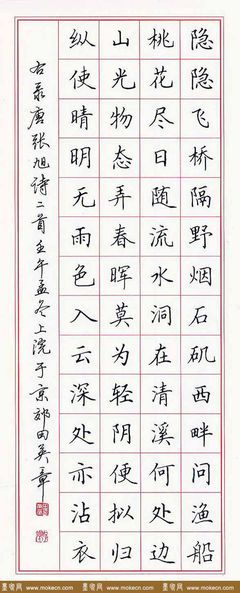 隐隐飞桥隔野烟石矶西畔问渔船
桃花尽日随流水洞在清溪何处边
山光物态弄春晖莫为轻阴便拟归
纵使晴明无雨色入云深处亦沾衣
右录唐张旭诗二首壬午孟冬上浣于京郊田英章
墨客网 www.mokecn.com 墨客网 www.mokecn.com